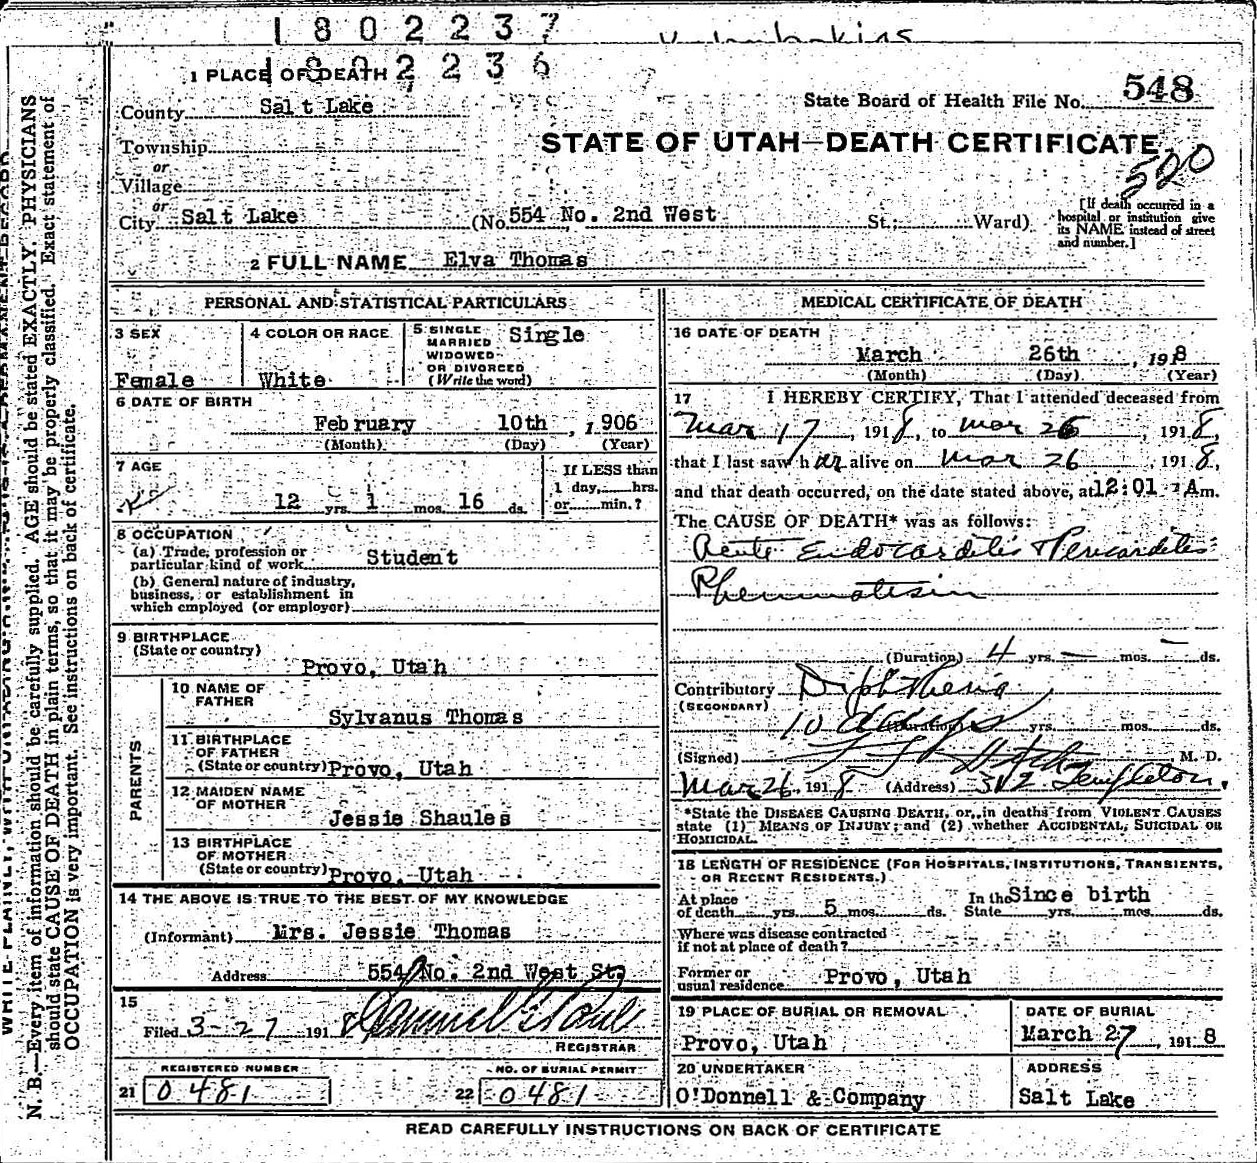 1802237
1802236
1 PLACE OF DEATH
County Salt Lake
State Board of Health File No. 548
Township
or
Village
or
STATE OF UTAH—DEATH CERTIFICATE
520
City Salt Lake (No. 554 No. 2nd West St.; Ward)
[If death occurred in a
hospital or institution give
its NAME instead of street
and number.]
2 FULL NAME Elva Thomas
PERSONAL AND STATISTICAL PARTICULARS
3 SEX
Female
4 COLOR OR RACE
White
5 SINGLE
MARRIED
WIDOWED
OR DIVORCED
(Write the word)
Single
6 DATE OF BIRTH
February 10th, 1906
(Month) (Day) (Year)
7 AGE
12 yrs. 1 mos. 16 ds.
If LESS than
1 day, hrs.
or min.?
8 OCCUPATION
(a) Trade, profession or
particular kind of work Student
(b) General nature of industry,
business, or establishment in
which employed (or employer)
9 BIRTHPLACE
(State or country)
Provo, Utah
PARENTS
10 NAME OF
FATHER
Sylvanus Thomas
11 BIRTHPLACE
OF FATHER
(State or country) Provo, Utah
12 MAIDEN NAME
OF MOTHER
Jessie Shaules
13 BIRTHPLACE
OF MOTHER
(State or country) Provo, Utah
14 THE ABOVE IS TRUE TO THE BEST OF MY KNOWLEDGE
(Informant) Mrs. Jessie Thomas
Address 554 No. 2nd West St.
15
Filed 3-27 1918
REGISTRAR
REGISTERED NUMBER
21 0481
NO. OF BURIAL PERMIT
22 0481
MEDICAL CERTIFICATE OF DEATH
16 DATE OF DEATH
March 26th, 1918
(Month) (Day) (Year)
17 I HEREBY CERTIFY, That I attended deceased from
Mar 17, 1918, to Mar 26, 1918,
that I last saw her alive on Mar 26, 1918,
and that death occurred, on the date stated above, at 12:01 Am.
The CAUSE OF DEATH* was as follows:
Acute Endocarditis & Pericarditis
Rheumatism
(Duration) 4 yrs. — mos. — ds.
Contributory Diphtheria
(SECONDARY)
10 days (Duration) yrs. mos. ds.
(Signed) M. D.
Mar 26, 1918 (Address) 312 Templeton.
*State the DISEASE CAUSING DEATH, or, in deaths from VIOLENT CAUSES
state (1) MEANS OF INJURY; and (2) whether ACCIDENTAL, SUICIDAL OR
HOMICIDAL.
18 LENGTH OF RESIDENCE (FOR HOSPITALS, INSTITUTIONS, TRANSIENTS,
OR RECENT RESIDENTS.)
At place
of death yrs. 5 mos. ds. In the
State Since birth yrs. mos. ds.
Where was disease contracted
if not at place of death?
Former or
usual residence Provo, Utah
19 PLACE OF BURIAL OR REMOVAL
Provo, Utah
DATE OF BURIAL
March 27, 1918
20 UNDERTAKER
O'Donnell & Company
ADDRESS
Salt Lake
READ CAREFULLY INSTRUCTIONS ON BACK OF CERTIFICATE
N. B.—Every item of information should be carefully supplied. AGE should be stated EXACTLY. PHYSICIANS
should state CAUSE OF DEATH in plain terms, so that it may be properly classified. Exact statement of
OCCUPATION is very important. See instructions on back of certificate.